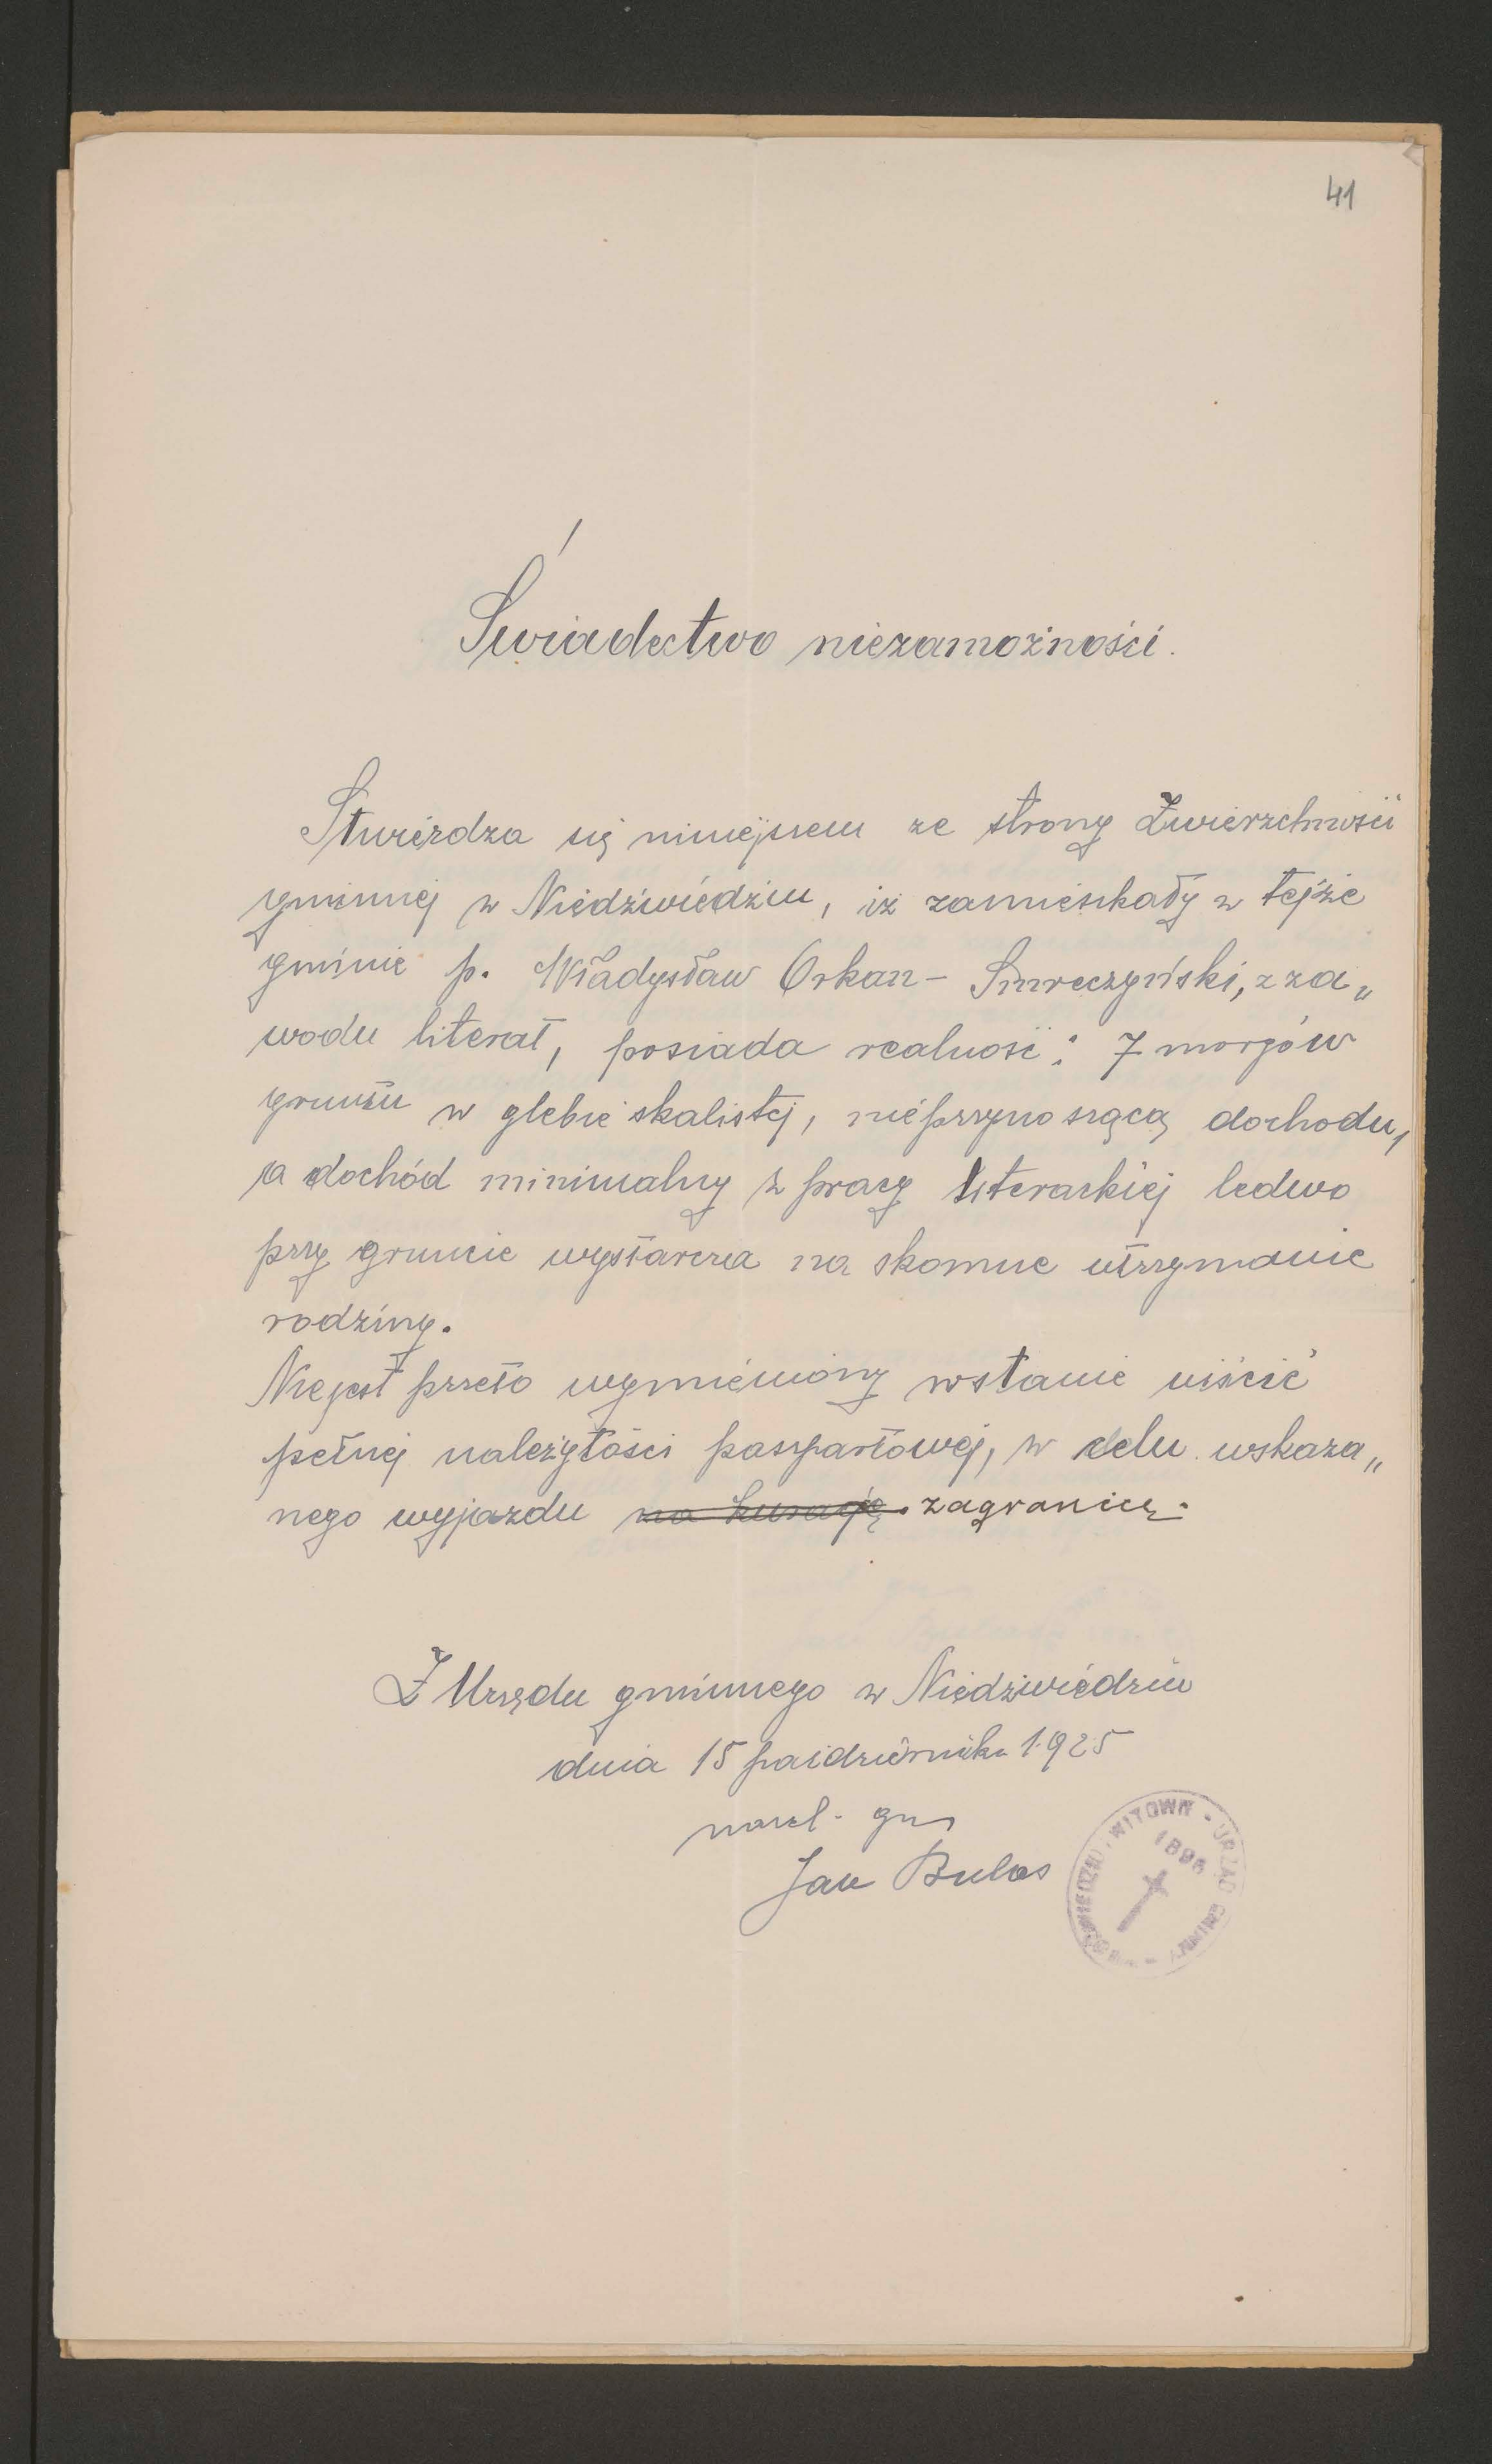 41
Świadectwo niezamożności.
Stwierdza się niniejszem ze strony Zwierzchności
gminnej w Niedźwiedziu, iż zamieszkały w tejże
gminie p. Władysław Orkan - Smreczyński, z za„
wodu literat, posiada realność: 7 morgów
gruntu w glebie skalistej, nieprzynoszącą dochodu,
a dochód minimalny z pracy literackiej ledwo
przy gruncie wystarcza na skomne utrzymanie
rodziny.
Niejest przeto wymieniony wstanie uiścić
pełnej należytości paszpartowej, w celu wskaza„
nego wyjazdu na kurację. zagranicę.
Z Urzędu gminnego w Niedźwiedziu
dnia 15 października 1925
nacz. gm
Jan Bulas
WITOWY - URZĄD GMINNY -
1898